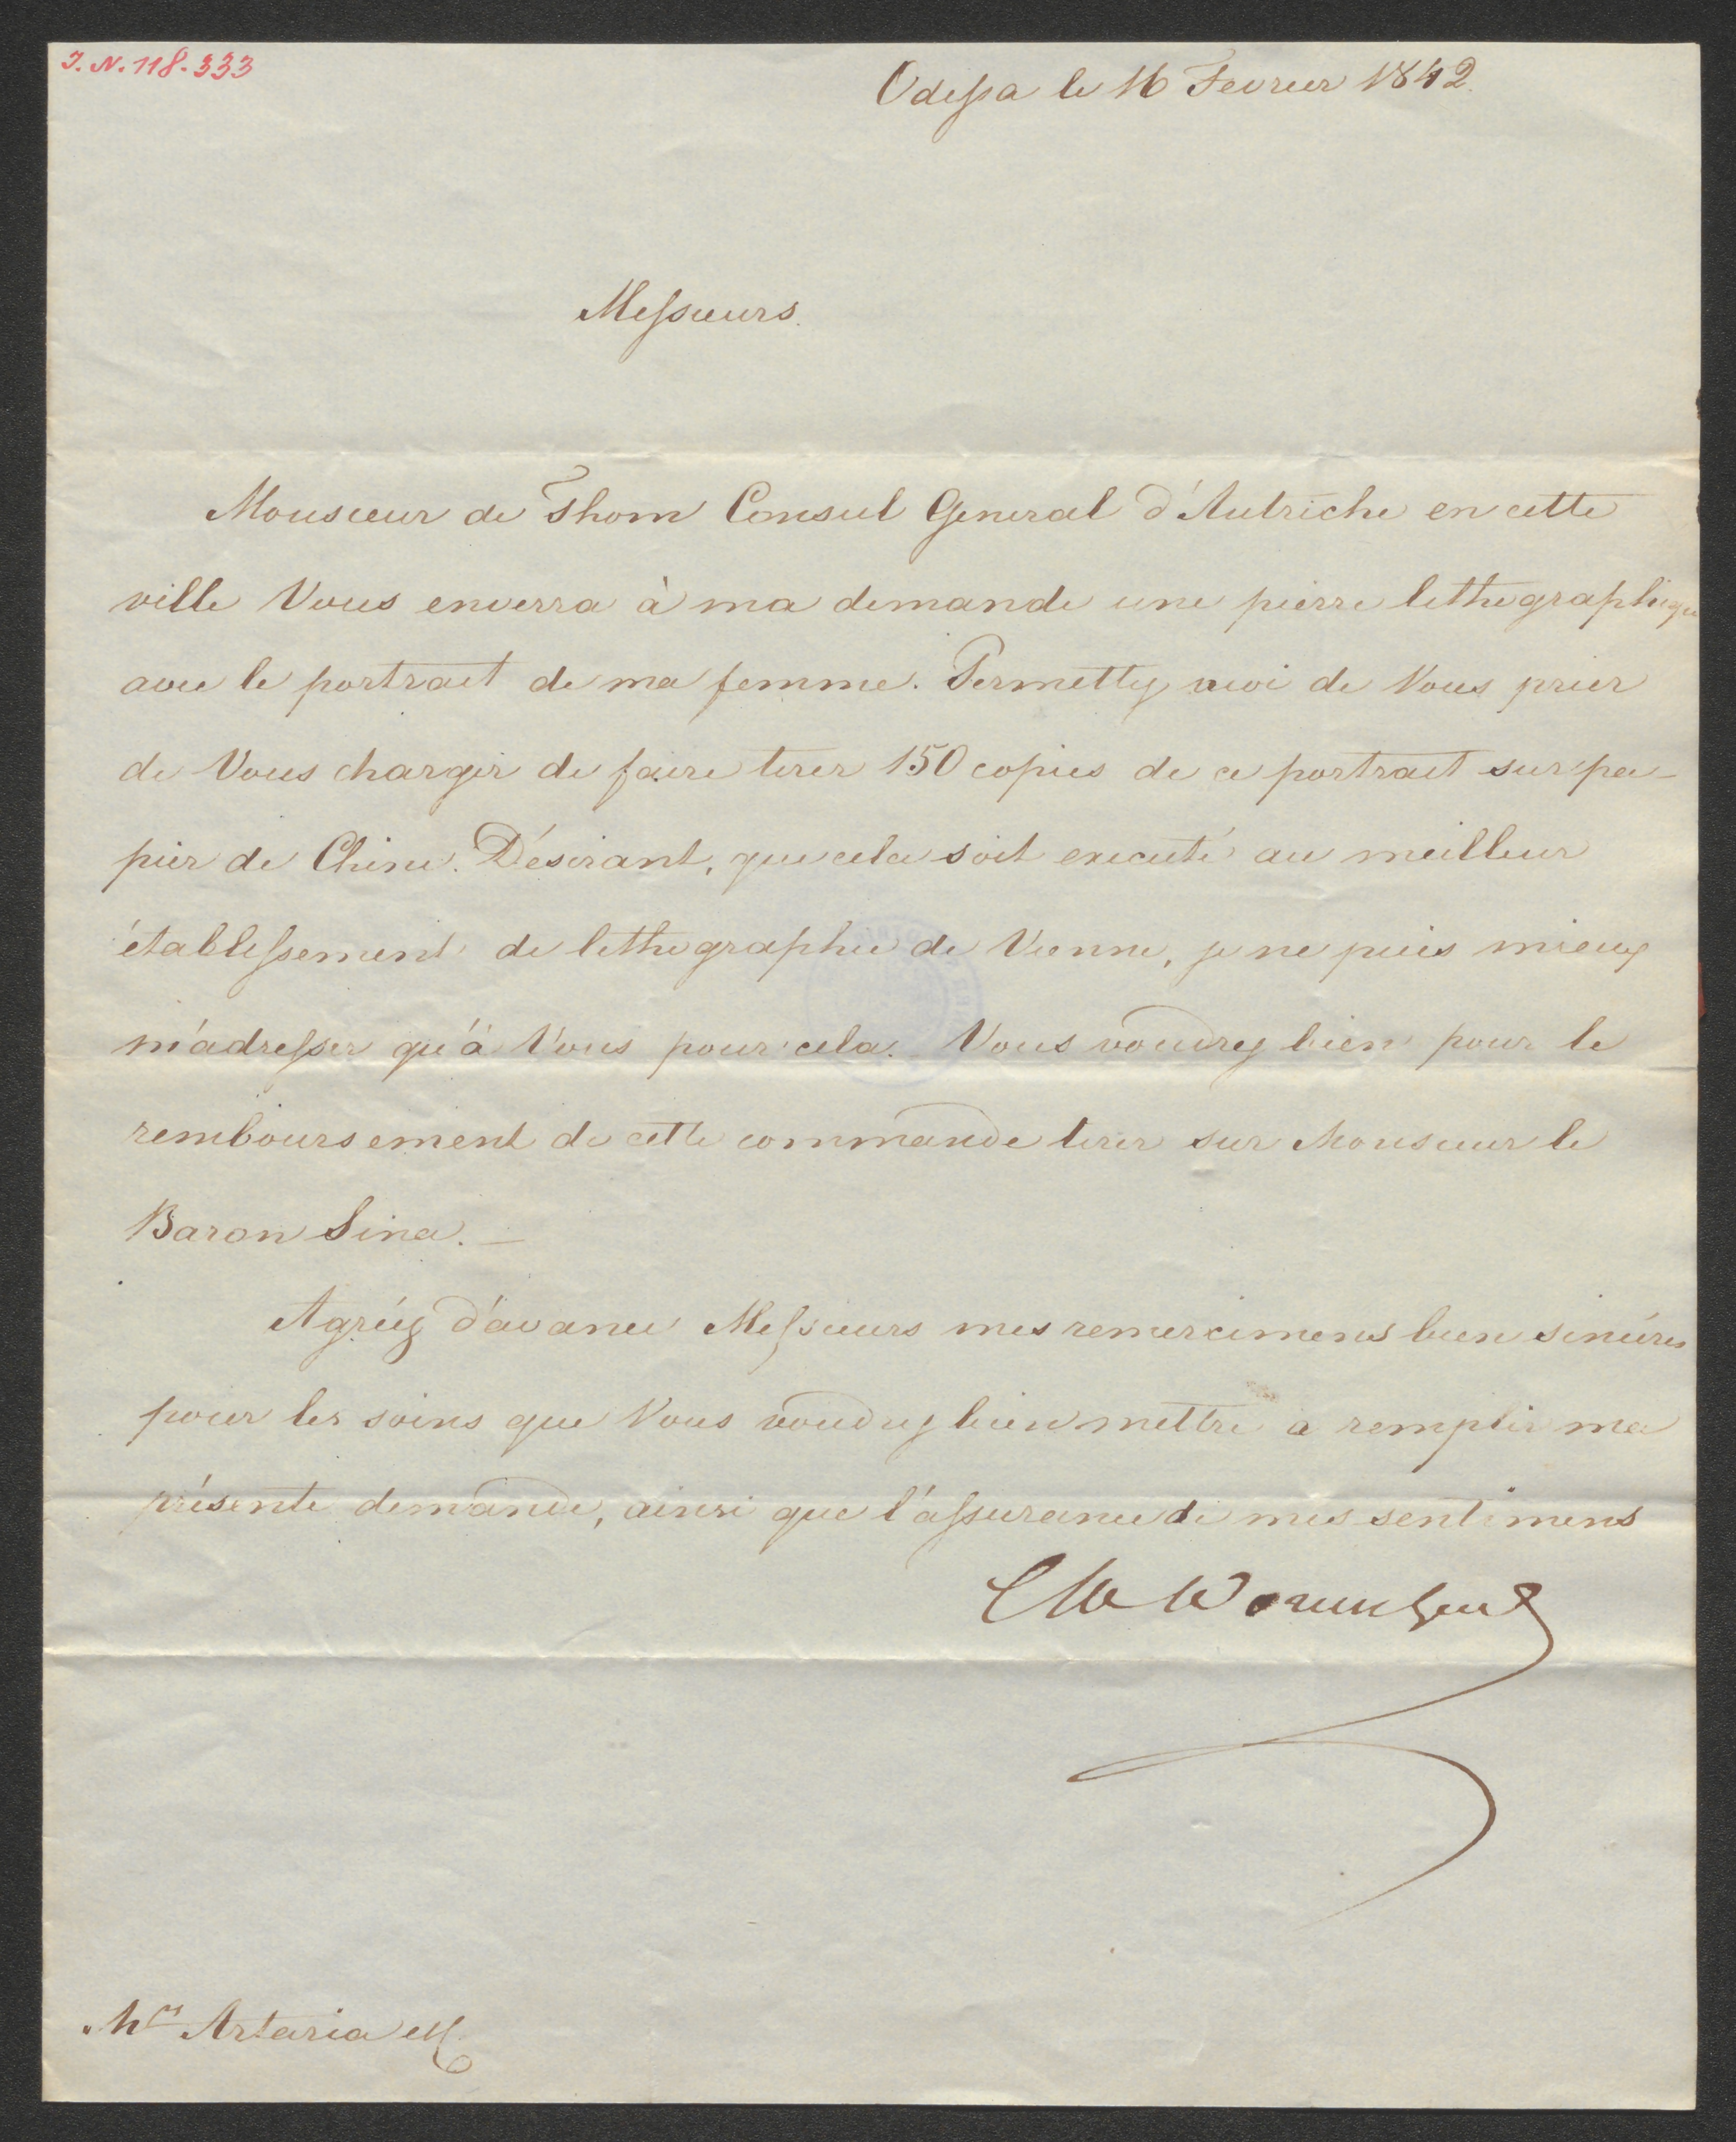 J.N. 118.333
Odessa le 16 Fevrier 1842.
Messieurs.
Monsieur de Thom Consul General d'Autriche en cette
ville Vous enverra à ma demande une pierre lithographique
avec le portrait de ma femme. Permettez moi de Vous prier
de Vous charger de faire tirer 150 copies de ce portrait sur pa-
pier de Chine. Désirant, que cela soit executé au meilleur
établissement de lithographie de Vienne, je ne puis mieux
m'adresser qu'à Vous pour cela. Vous voudrez bien pour le
remboursement de cette commande tirer sur Monsieur le
Baron Sina. —
Agréez d'avance Messieurs mes remercimens bien sincéres
pour les soins que Vous voudrez bien mettre a remplir ma
présente demande, ainsi que l'assurance de mes sentimens
Mrs Artaria